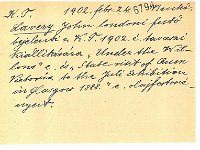 K.T. 1902. febr. 24
Lavery John londoni festő
bejelenti a K.T. 1902. i. tavaszi
kiállítására, "Under the
" c. és "State visit of Queen
Victoria to the Exhibition
in Glasgow 1888." c. olajfestmé-
nyeit.